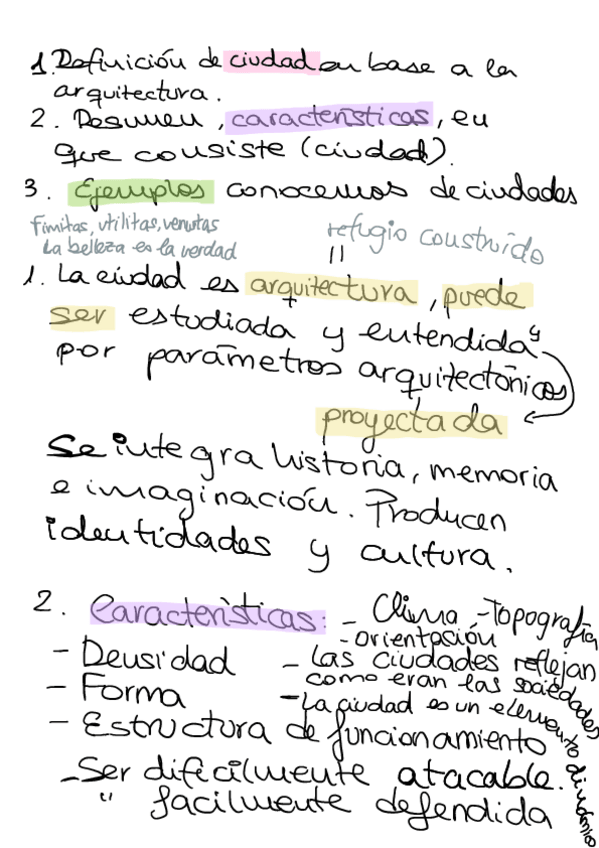 1. Definición de ciudad en base a la
arquitectura.
2. Resumen, características, en
que consiste (ciudad).
3. Ejemplos conocemos de ciudades
Fimitas, utilitas, venutas
La belleza es la verdad
refugio construido
"
1. La ciudad es arquitectura, puede
ser estudiada y entendida y
por parámetros arquitectónicos
proyectada
Se integra historia, memoria
e imaginación. Producen
identidades y cultura.
2. Características: - Clima - Topografía
- orientación
- Densidad - Las ciudades reflejan
como eran las sociedades
- Forma - La ciudad es un elemento dinámico
- Estructura de funcionamiento
- Ser dificilmente atacable.
" facilmente defendida